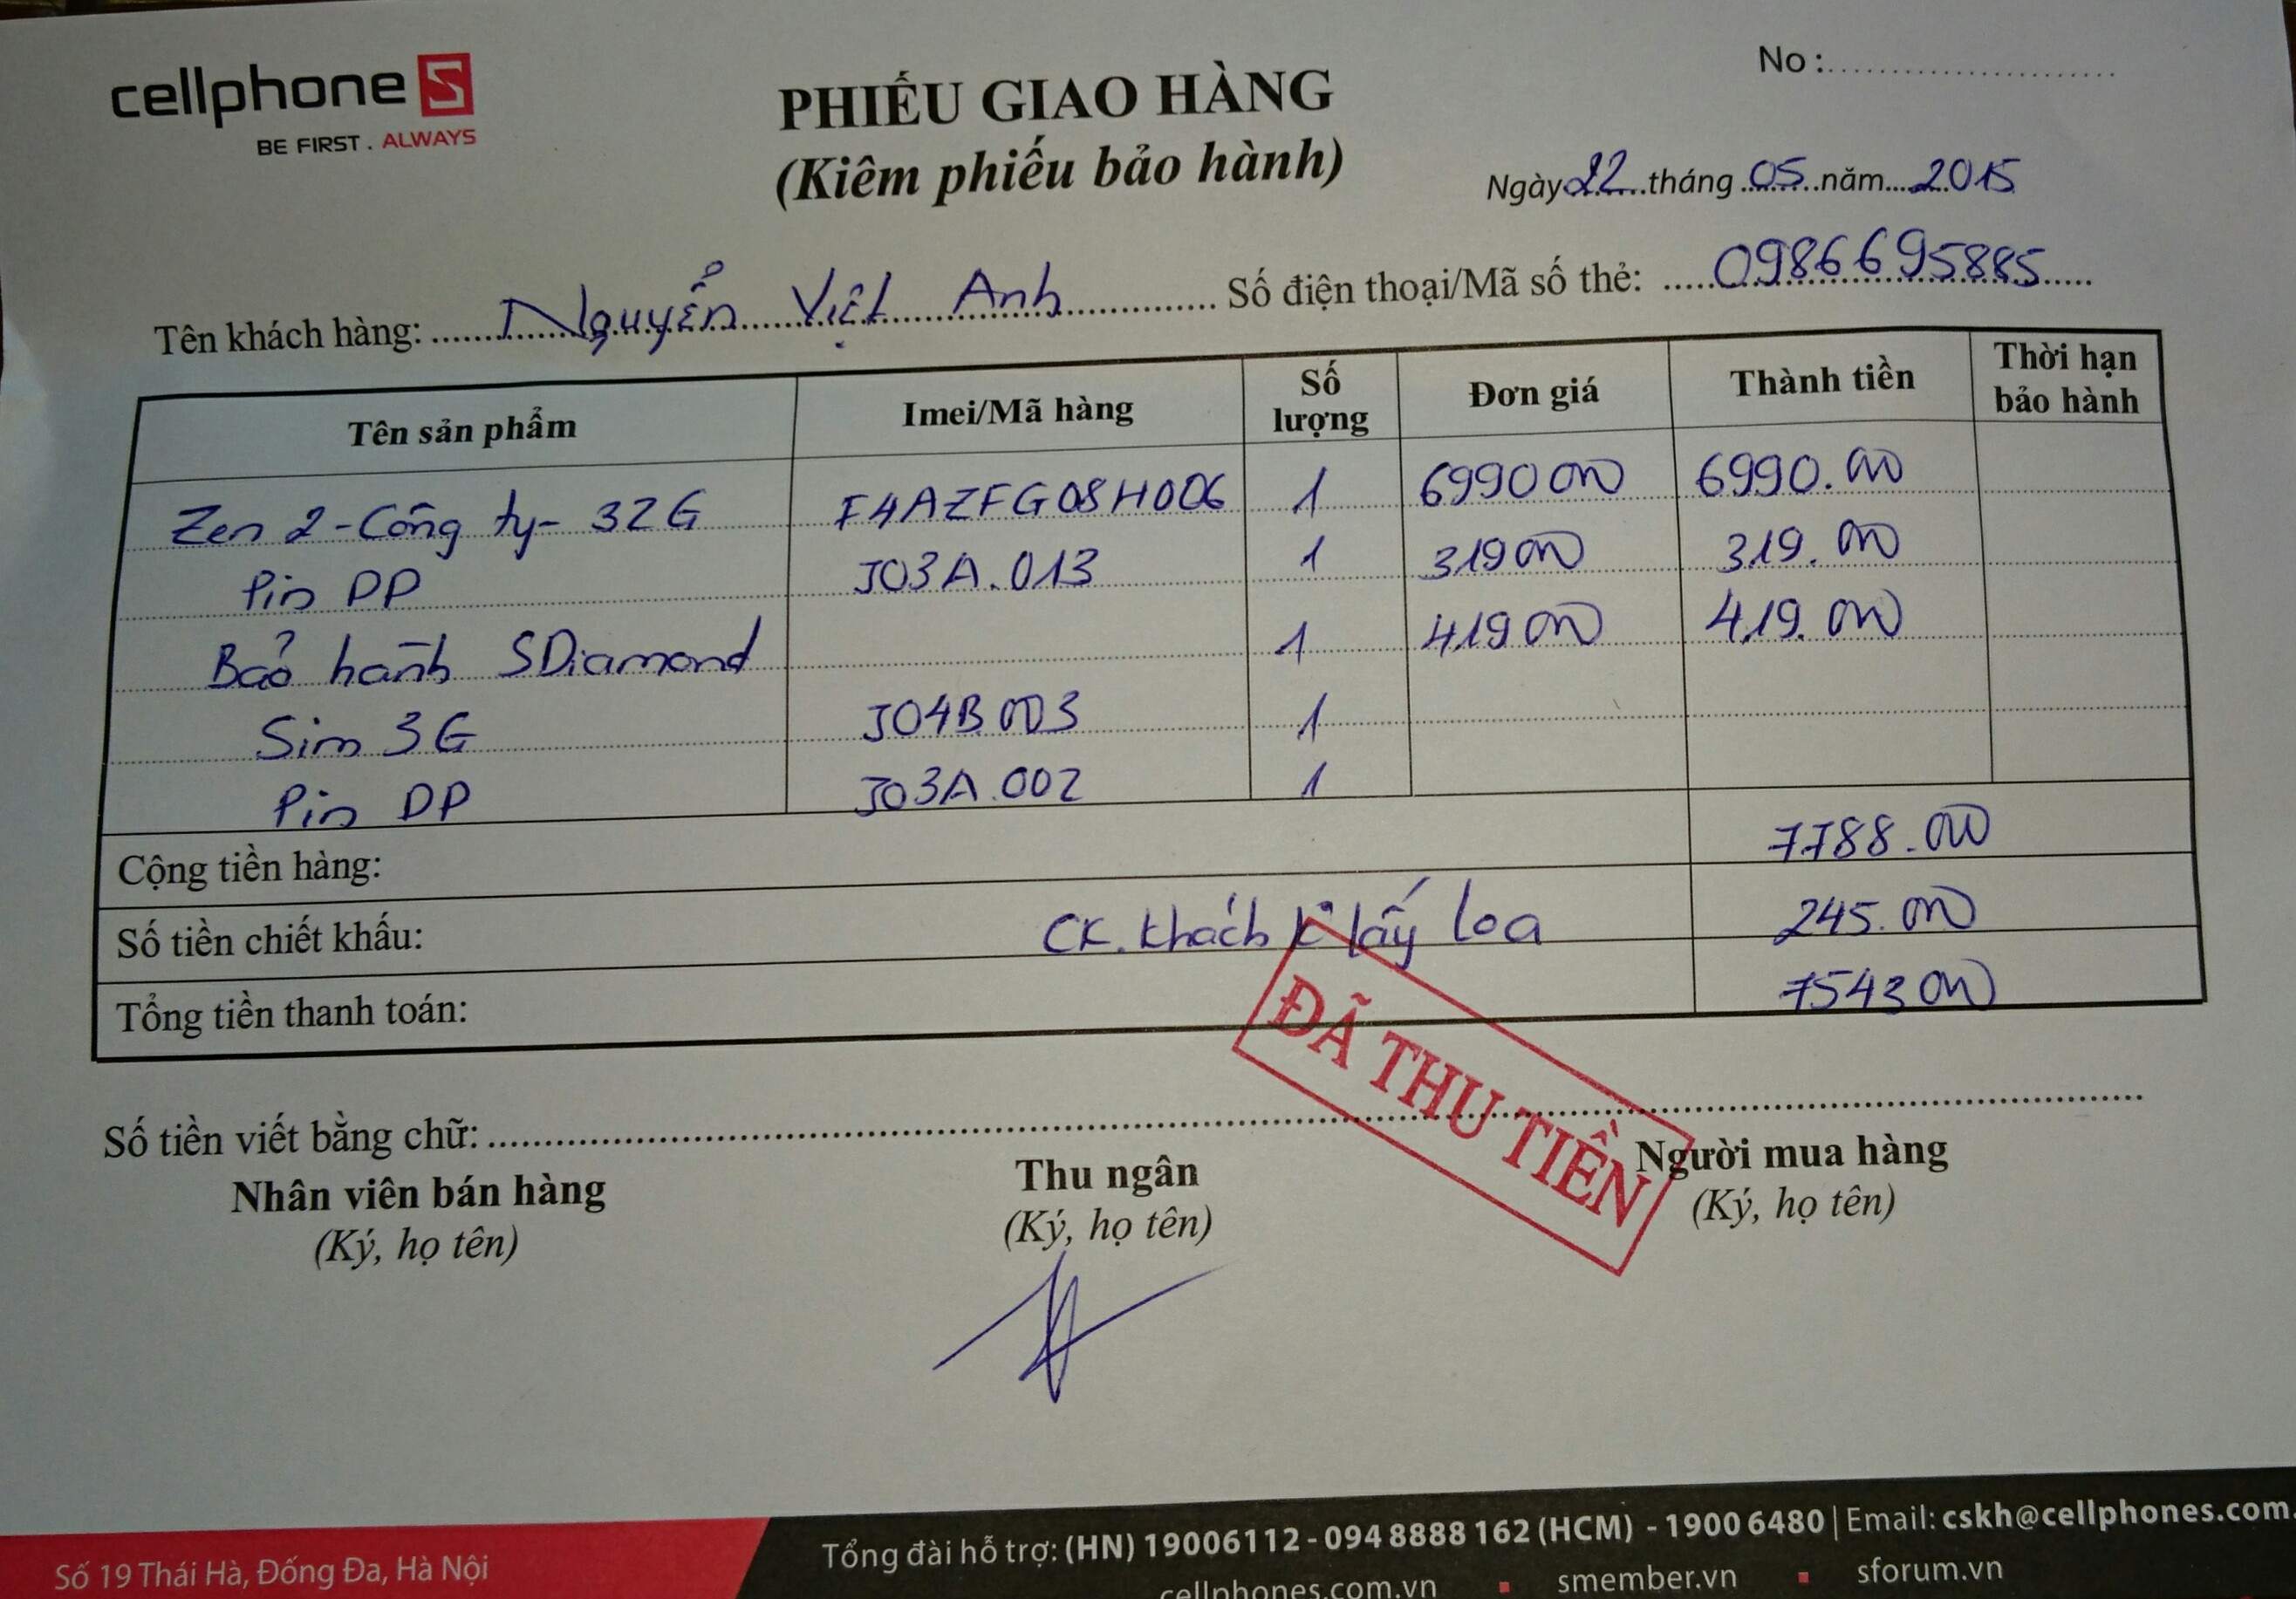 cellphoneS
BE FIRST . ALWAYS
PHIẾU GIAO HÀNG
(Kiêm phiếu bảo hành)
No :
Ngày 22 tháng 05 năm 2015
Tên khách hàng: Nguyễn Việt Anh Số điện thoại/Mã số thẻ: 0986695885
Tên sản phẩm Imei/Mã hàng Số lượng Đơn giá Thành tiền Thời hạn bảo hành
Zen 2 - Công ty - 32G F4AZFG08H006 1 6990000 6990.000
Pin DP J03A.013 1 319000 319.000
Bảo hành SDiamond 1 419000 419.000
Sim 3G J04B003 1
Pin DP J03A.002 1
Cộng tiền hàng: 7788.000
Số tiền chiết khấu: CK. khách k lấy loa 245.000
Tổng tiền thanh toán: 7543000
ĐÃ THU TIỀN
Số tiền viết bằng chữ:
Nhân viên bán hàng Thu ngân Người mua hàng
(Ký, họ tên) (Ký, họ tên) (Ký, họ tên)
Số 19 Thái Hà, Đống Đa, Hà Nội
Tổng đài hỗ trợ: (HN) 19006112 - 094 8888 162 (HCM) - 1900 6480 | Email: cskh@cellphones.com.
cellphones.com.vn ▪ smember.vn ▪ sforum.vn